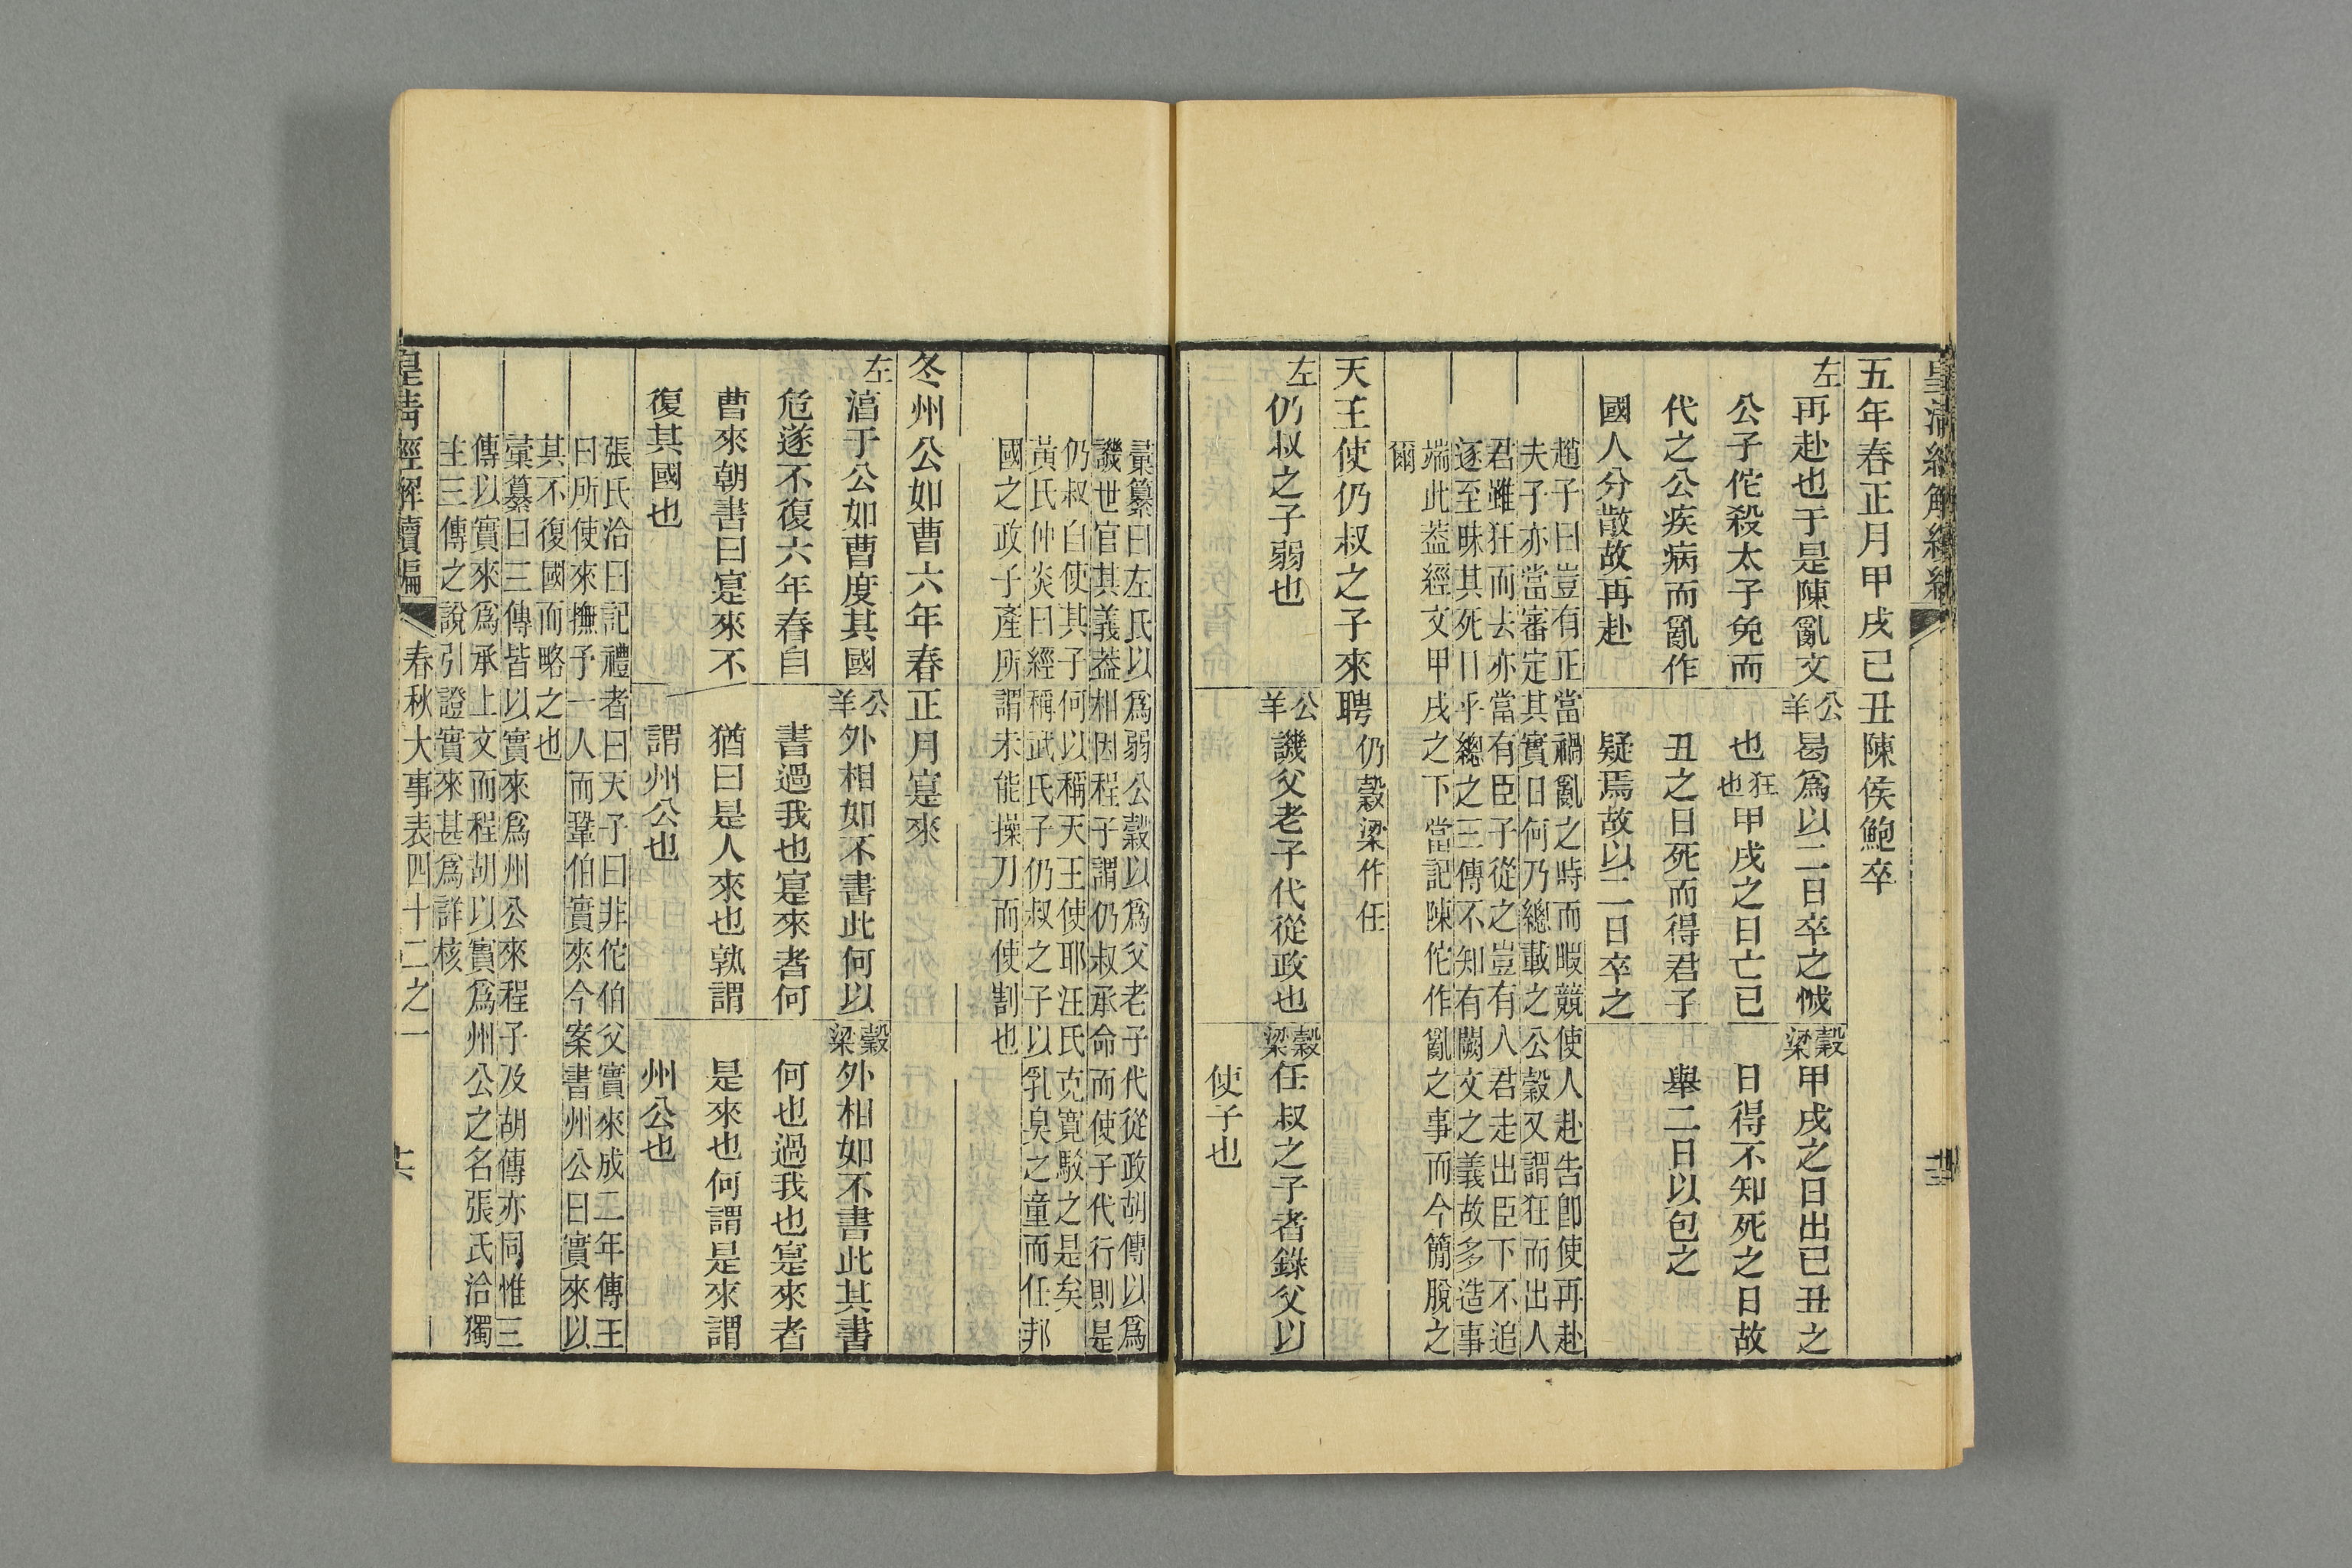 皇清經解續編
五年春正月甲戌己丑陳侯鮑卒
左
再赴也于是陳亂文
公子佗殺太子免而
代之公疾病而亂作
國人分散故再赴
公羊
曷爲以二日卒之怴
也狂也甲戌之日亡己
丑之日死而得君子
疑焉故以二日卒之
穀梁
甲戌之日出己丑之
日得不知死之日故
舉二日以包之
趙子曰豈有正當禍亂之時而暇競使人赴告卽使再赴
夫子亦當審定其實日何乃總載之公穀又謂狂而出人
君雖狂而去亦當有臣子從之豈有人君走出臣下不追
逐至昧其死日乎總之三傳不知有闕文之義故多造事
端此葢經文甲戌之下當記陳佗作亂之事而今簡脫之
爾
天王使仍叔之子來聘仍穀梁作任
左
仍叔之子弱也
公羊
譏父老子代從政也
穀梁
任叔之子者錄父以
使子也
彙纂曰左氏以爲弱公穀以爲父老子代從政胡傳以爲
譏世官其義葢相因程子謂仍叔承命而使子代行則是
仍叔自使其子何以稱天王使耶汪氏克寬駁之是矣
黃氏仲炎曰經稱武氏子仍叔之子以乳臭之童而任邦
國之政子產所謂未能操刀而使割也
冬州公如曹六年春正月寔來
左
湻于公如曹度其國
危遂不復六年春自
曹來朝書曰寔來不
復其國也
公羊
外相如不書此何以
書過我也寔來者何
猶曰是人來也孰謂
謂州公也
穀梁
外相如不書此其書
何也過我也寔來者
是來也何謂是來謂
州公也
張氏洽曰記禮者曰天子曰非佗伯父實來成二年傳王
曰所使來撫予一人而鞏伯實來今案書州公曰實來以
其不復國而略之也
彙纂曰三傳皆以實來爲州公來程子及胡傳亦同惟三
傳以實來爲承上文而程胡以實爲州公之名張氏洽獨
主三傳之說引證實來甚爲詳核
皇清經解續編 春秋大事表四十二之一